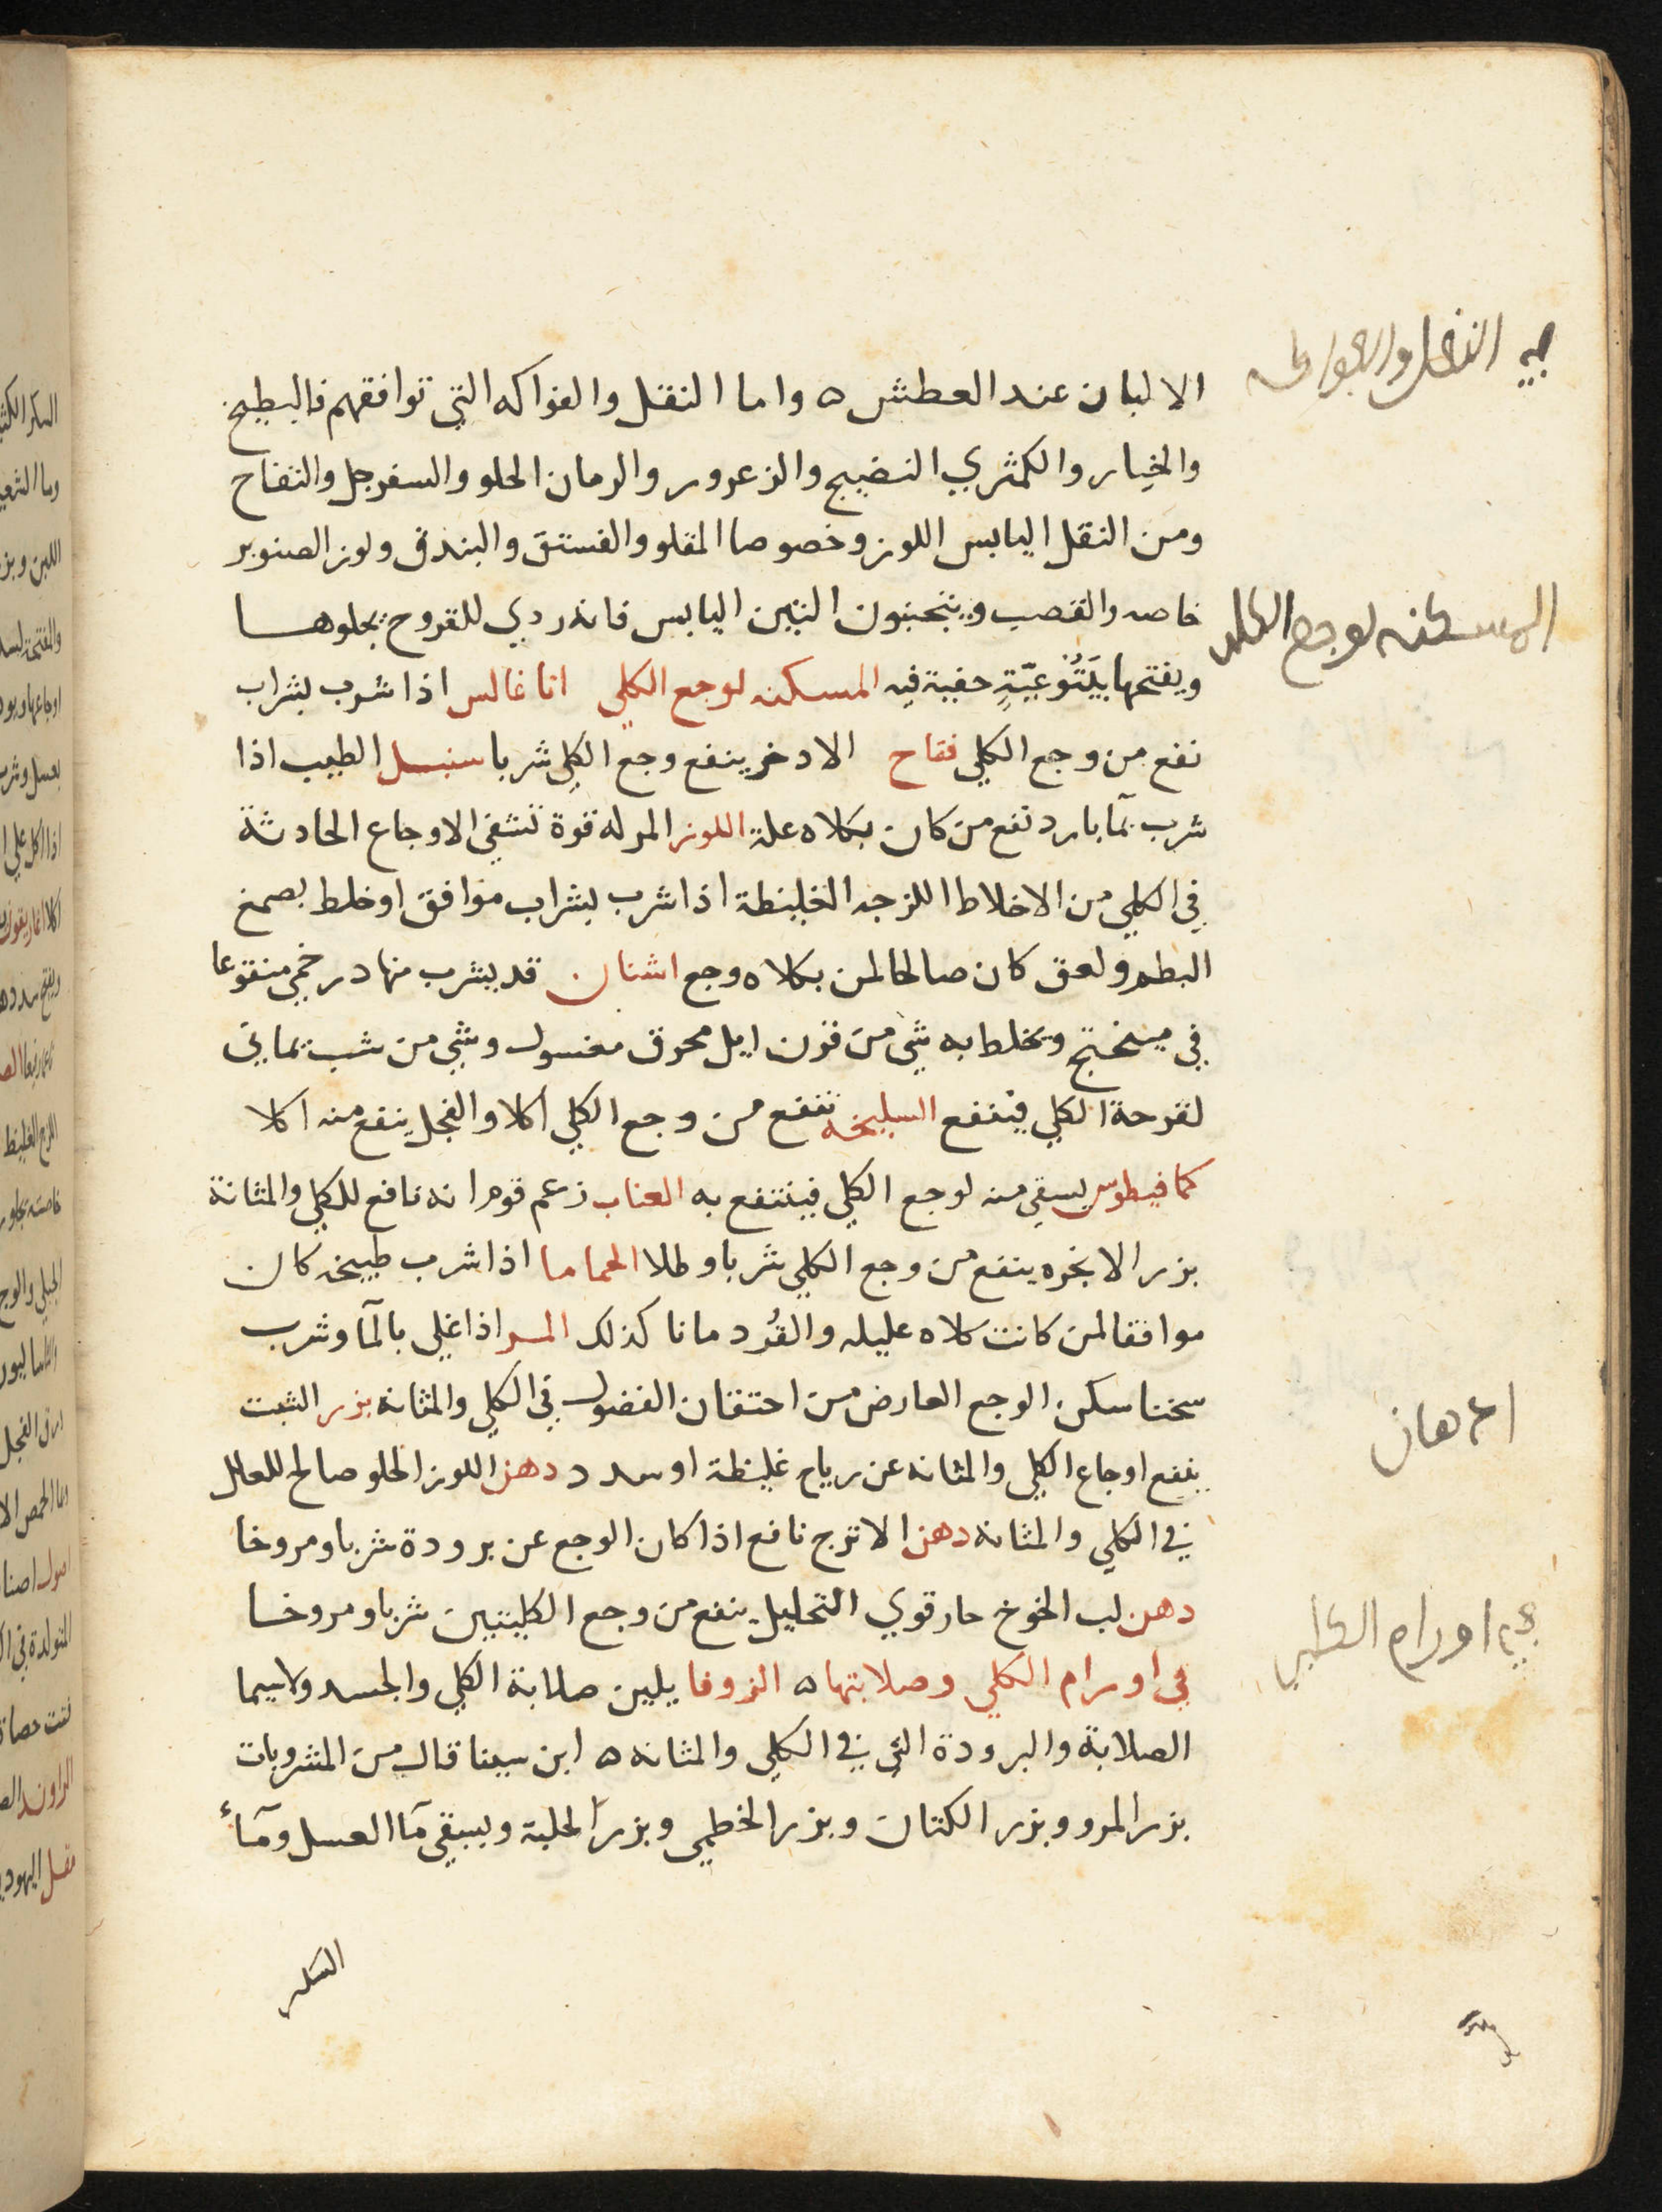 الالبان عند العطش ٥ واما النقل والفواكه التي توافقهم فالبطيخ
والخيار والكمثري النضيج والزعرور والرمان الحلو والسفرجل والتفاح
ومن النقل اليابس اللوز وخصوصا المقلو والفستق والبندق ولوز الصنوبر
خاصه والقصب ويتجنبون التين اليابس فانه ردي للقروح يجلوها
ويفتحها بيَتُوْعيّةٍ خفية فيه المسكنه لوجع الكلي اناغالس اذا شرب بشراب
نفع من وجع الكلي فقاح الادخر ينفع وجع الكلي شربا سنبل الطيب اذا
شرب بمآ بارد نفع من كان بكلاه علة اللوز المر له قوة تشفي الاوجاع الحادثة
في الكلي من الاخلاط اللزجه الغليظة اذا شرب بشراب موافق اوخلط بصمغ
البطم ولعق كان صالحا لمن بكلاه وجع اشنان قد يشرب منها درخمي منقوعا
في ميبختج ويخلط به شي من قرن ايل محرق مغسول وشي من شب يماني
لقرحة الكلي فينفع السليخه تنفع من وجع الكلي اكلا والفجل ينفع منه اكلا
كمافيطوس يسقي منه لوجع الكلي فينتفع به العناب زعم قوم انه نافع للكلي والمثانة
بزر الانجره ينفع من وجع الكلي شربا وطلا الحماما اذا شرب طبيخه كان
موافقا لمن كانت كلاه عليله والقُردمانا كذلك المر اذا غلي بالمآ وشرب
سخنا سكن الوجع العارض من احتقان الفضول في الكلي والمثانه بزر الشبت
ينفع اوجاع الكلي والمثانه عن رياح غليظة او سدد دهن اللوز الحلو صالح للعلل
في الكلي والمثانه دهن الاترج نافع اذا كان الوجع عن برودة شربا ومروخا
دهن لب الخوخ حار قوي التحليل ينفع من وجع الكليتين شربا ومروخا
في اورام الكلي وصلابتها ٥ الزوفا يلين صلابة الكلي والجسد ولاسيما
الصلابة والبرودة التي في الكلي والمثانه ٥ ابن سينا قال من المشروبات
بزر المرو وبزر الكتان وبزر الخطمي وبزر الحلبة ويسقي مآ العسل ومآء
السكر
في النقل والفواكه
المسكنه لوجع الكلى
ادهان
في اورام الكلى